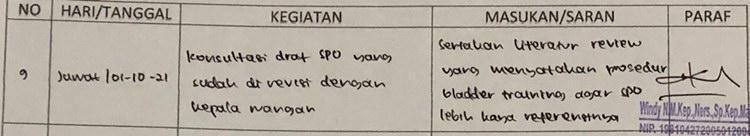 NO HARI/TANGGAL KEGIATAN MASUKAN/SARAN PARAF
9 Jumat / 01-10-21
konsultasi draf SPO yang
sudah di revisi dengan
kepala ruangan
Sertakan literatur review
yang menyatakan prosedur
bladder training agar SPO
lebih kaya referensinya
Windy N.M.Kep.,Ners.,Sp.Kep.Ma
NIP. 198104272005012001